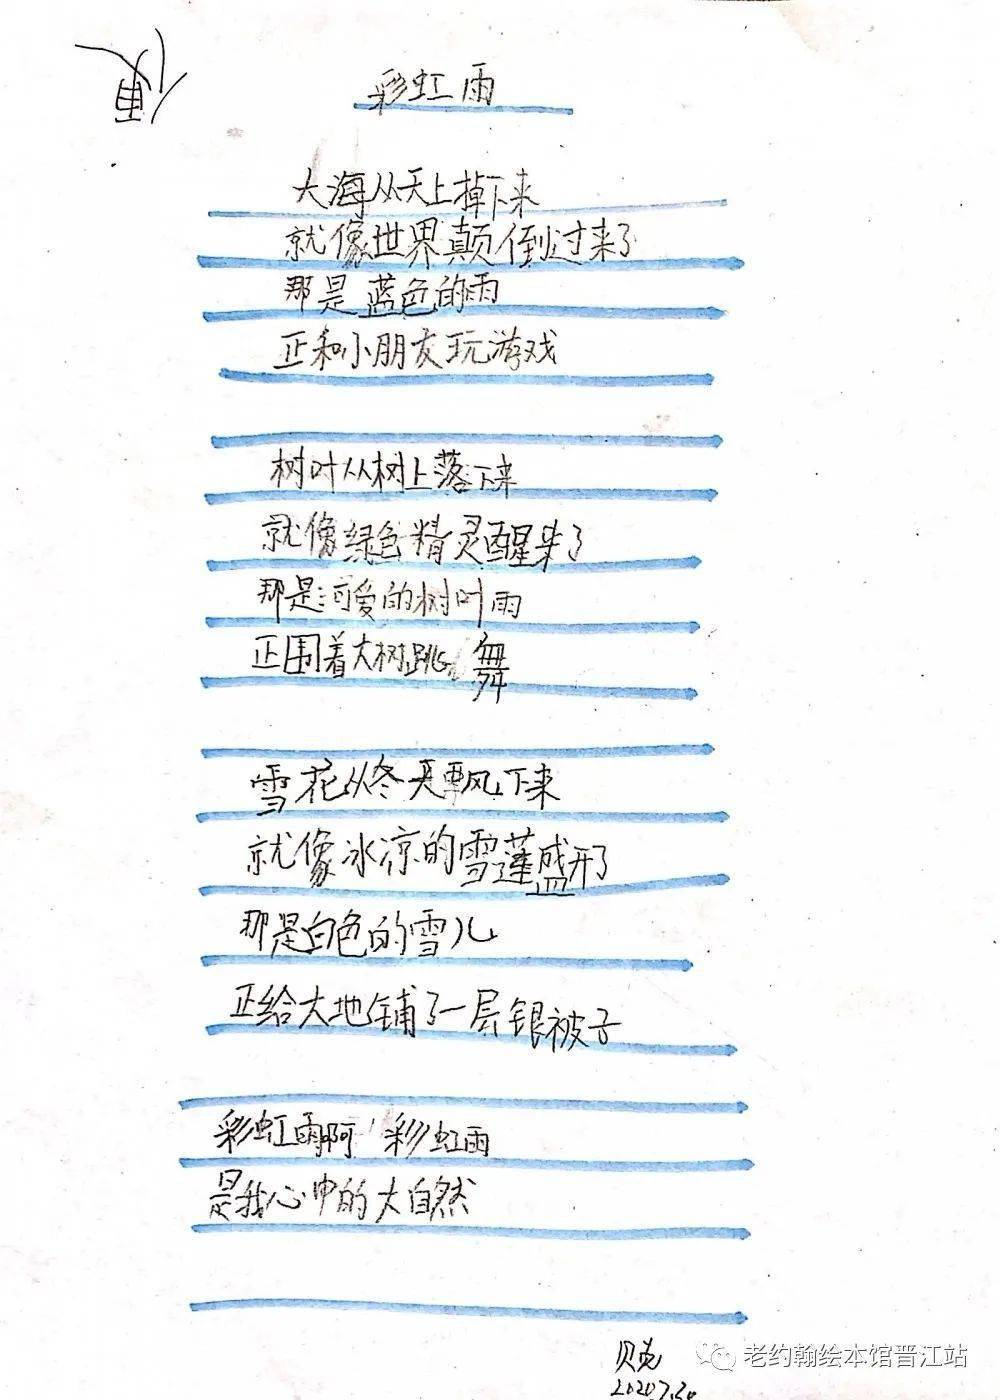 彩虹雨
大海从天上掉下来
就像世界颠倒过来了
那是蓝色的雨
正和小朋友玩游戏
树叶从树上落下来
就像绿色精灵醒来了
那是可爱的树叶雨
正围着大树跳舞
雪花从冬天飘下来
就像冰凉的雪莲盛开了
那是白色的雪儿
正给大地铺了一层银被子
彩虹雨啊,彩虹雨
是我心中的大自然
2020.7.30
老约翰绘本馆晋江站